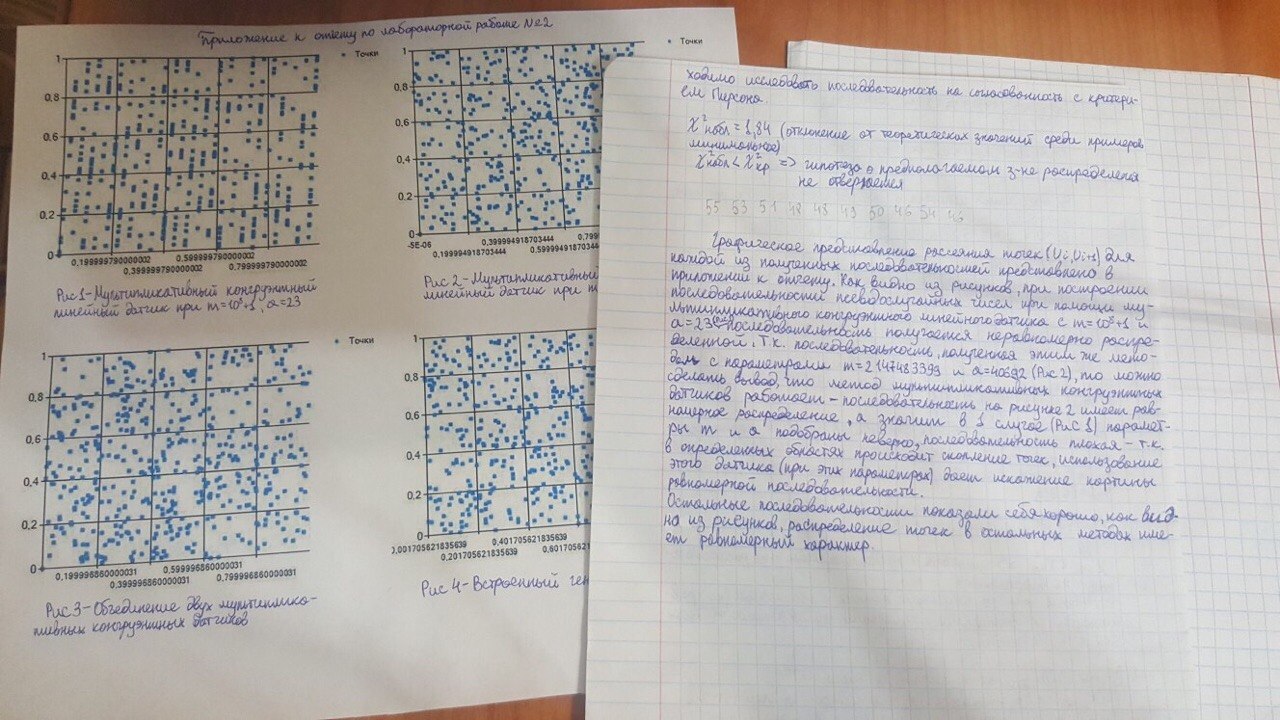 Приложение к отчету по лабораторной работе №2
Точки
1
0,8
0,6
0,4
0,2
0
0,199999790000002
0,399999790000002
0,599999790000002
0,799999790000002
Рис 1-Мультипликативный конгруэнтный
линейный датчик при m=10⁸+1, a=23
Точки
1
0,8
0,6
0,4
0,2
0
-5E-06
0,199994918703444
0,399994918703444
0,599994918703444
0,799
Рис 2-Мультипликативный
линейный датчик при m
Точки
1
0,8
0,6
0,4
0,2
0
0,199996860000031
0,399996860000031
0,599996860000031
0,799996860000031
Рис 3-Объединение двух мультиплика-
тивных конгруэнтных датчиков
1
0,8
0,6
0,4
0,2
0
0,001705621835639
0,201705621835639
0,401705621835639
0,601705621835639
Рис 4-Встроенный ген
ходимо исследовать последовательность на согласованность с критери-
ем Пирсона.
χ²набл = 1,84 (отклонение от теоретических значений среди примеров
минимальное)
χ²набл < χ²кр => гипотеза о предполагаемом з-не распределения
не отвергается
55 53 51 48 48 49 50 46 54 46
Графическое представление рассеяния точек (Ui, Ui+1) для
каждой из полученных последовательностей представлено в
приложении к отчету. Как видно из рисунков, при построении
последовательности псевдослучайных чисел при помощи му-
льтипликативного конгруэнтного линейного датчика с m=10⁸+1 и
a=23 последовательность получается неравномерно распре-
деленной. Т.к. последовательность, полученная этим же мето-
дом с параметрами m=2147483399 и a=40692 (Рис.2), то можно
сделать вывод, что метод мультипликативных конгруэнтных
датчиков работает - последовательность на рисунке 2 имеет рав-
номерное распределение, а значит в 1 случае (Рис 1) парамет-
ры m и a подобраны неверно, последовательность плохая - т.к.
в определенных областях происходит скопление точек, использование
этого датчика (при этих параметрах) дает искажение картины
равномерной последовательности.
Остальные последовательности показали себя хорошо, как вид-
но из рисунков, распределение точек в остальных методах име-
ет равномерный характер.